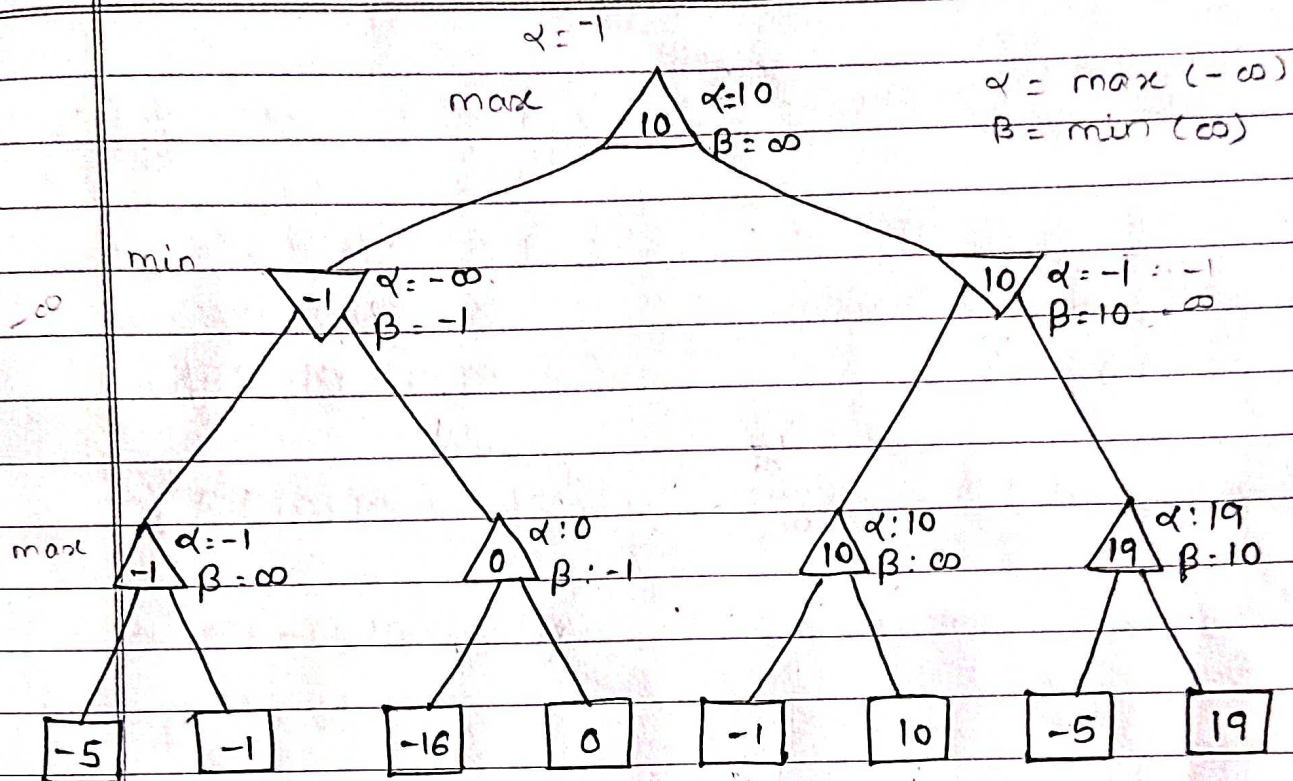 α = -1
max
10
α=10
β = ∞
α = max (-∞)
β = min (∞)
min
-∞
-1
α = -∞
β = -1
10
α = -1 : -1
β = 10 - ∞
max
-1
α = -1
β = ∞
0
α : 0
β : -1
10
α : 10
β : ∞
19
α : 19
β : 10
-5 -1 -16 0 -1 10 -5 19